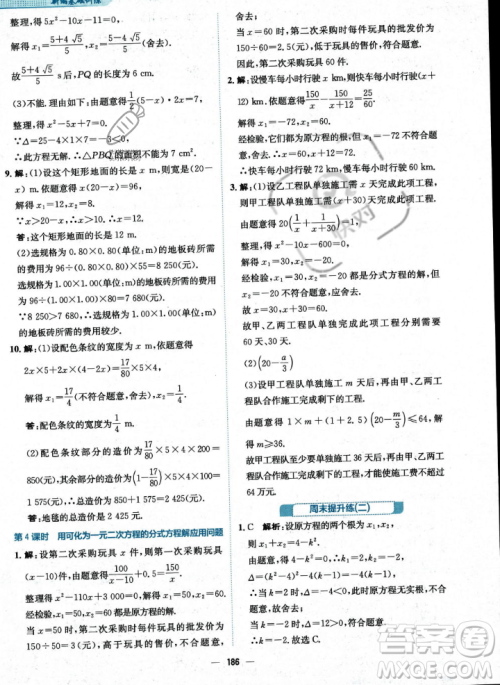 整理,得 5x²-10x-11=0.
解得 x₁=(5+4√5)/5, x₂=(5-4√5)/5(舍去).
故(5+4√5)/5 s后,PQ 的长度为
(3)不能.理由:由题意得 (5-x)·2x=7,
∵Δ=25-4×1×7=-3<0,
∴此方程无解.∴△PBQ的面积不能为 7 cm².
9.解:(1)设这个矩形地面的长是 x m.
由题意得 x(x-20)=96.
整理,得 x²-20x+96=0,
解得 x₁=12,x₂=8.
∵x>20-x,∴x>10,∴x=12.
答:这个矩形地面的长是 12 m.
(2)选规格为 0.80×0.80(单位:m)的地板砖所需
的费用为 96÷(0.80×0.80)×55=8 250(元),
选规格为 1.00×1.00(单位:m)的地板砖所需的
费用为 96÷(1.00×1.00)×80=7 680(元).
∵8 250>7 680,∴选规格为 1.00×1.00(单位:m)
的地板砖所需的费用较少.
10.解:(1)设配色条纹的宽度为 x m.
由题意得
2x×5+2x×4-4x²=17/80×5×4,
解得 x₁=17/4(舍去),x₂=1/4.
答:配色条纹的宽度为 1/4 m.
(2)配色条纹部分的造价为 17/80×5×4×200=
850(元),
其余部分的造价为(1-17/80)×5×4×100=
1 575(元),∴总造价为 850+1 575=2 425(元).
答:地毯的总造价为 2 425元.
第 4 课时 用可化为一元二次方程的分式方程解应用问题
1.解:设第二次采购玩具 x 件,则第一次采购玩具
(x-10)件.
由题意得 100/(x-10)+0.5=150/x.
整理,得 x²-110x+3 000=0,
解得 x₁=50,x₂=60.
经检验,x₁=50,x₂=60 都是原方程的解.
当 x=50 时,第二次采购时每件玩具的批发价为
150÷50=3(元),高于玩具的售价,不合题意,
舍去;
当 x=60 时,第二次采购时每件玩具的批发价为
150÷60=2.5(元),低于玩具的售价,符合题意.
因此,第二次采购玩具
2.解:设慢车每小时行驶 x km,则快车每小时行驶(x+
12) km.由题意得 150/x-150/(x+12)=
解得 x₁=
经检验,
∴快车每小时行驶
3.解:(1)设乙工程队单独施工需 x 天完成此项工程,
则甲工程队单独施工需(x+30)天完成此项工程.
由题意得 20(1/x+1/(x+30))=1.
整理,得 x²-10x-600=0,
解得 x₁=30,x₂=-20.
经检验,x₁=30,x₂=-20 都是分式方程的解,但
x₂=-20 不符合题意,舍去.
∴x+30=60.
故甲、乙两工程队单独完成此项工程分别需要
60天,30天.
(2)(20-a/3)
(3)设甲工程队单独施工 m 天,再由甲、乙两工程
队合作施工完成剩下的工程.
由题意得 1×m+(1+2.5)(20-m/3)≤64,
解得 m≥36.
故甲工程队至少要单独施工36天后,再由甲、乙两
工程队合作施工完成剩下的工程.
周末提升练(二)
1. C 解析:设原方程的两个根为 x₁,x₂,
则 x₁+x₂=
整理,得
当 k=2 时,Δ=(k²-4)²-4(k-1)=-4<0,
当 k=-2 时,Δ=(k²-4)²-4(k-1)=12>0,
∴k=-2.故选 C.
186
快对
答案圈
MXQE.COM